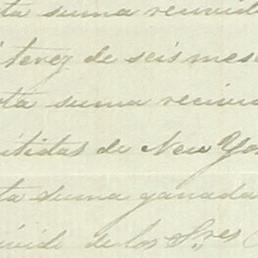 ta suma recivid
tevez de seis mese
ta suma reciui
itidas de New Yo
ta suma ganada
uide de los Sres